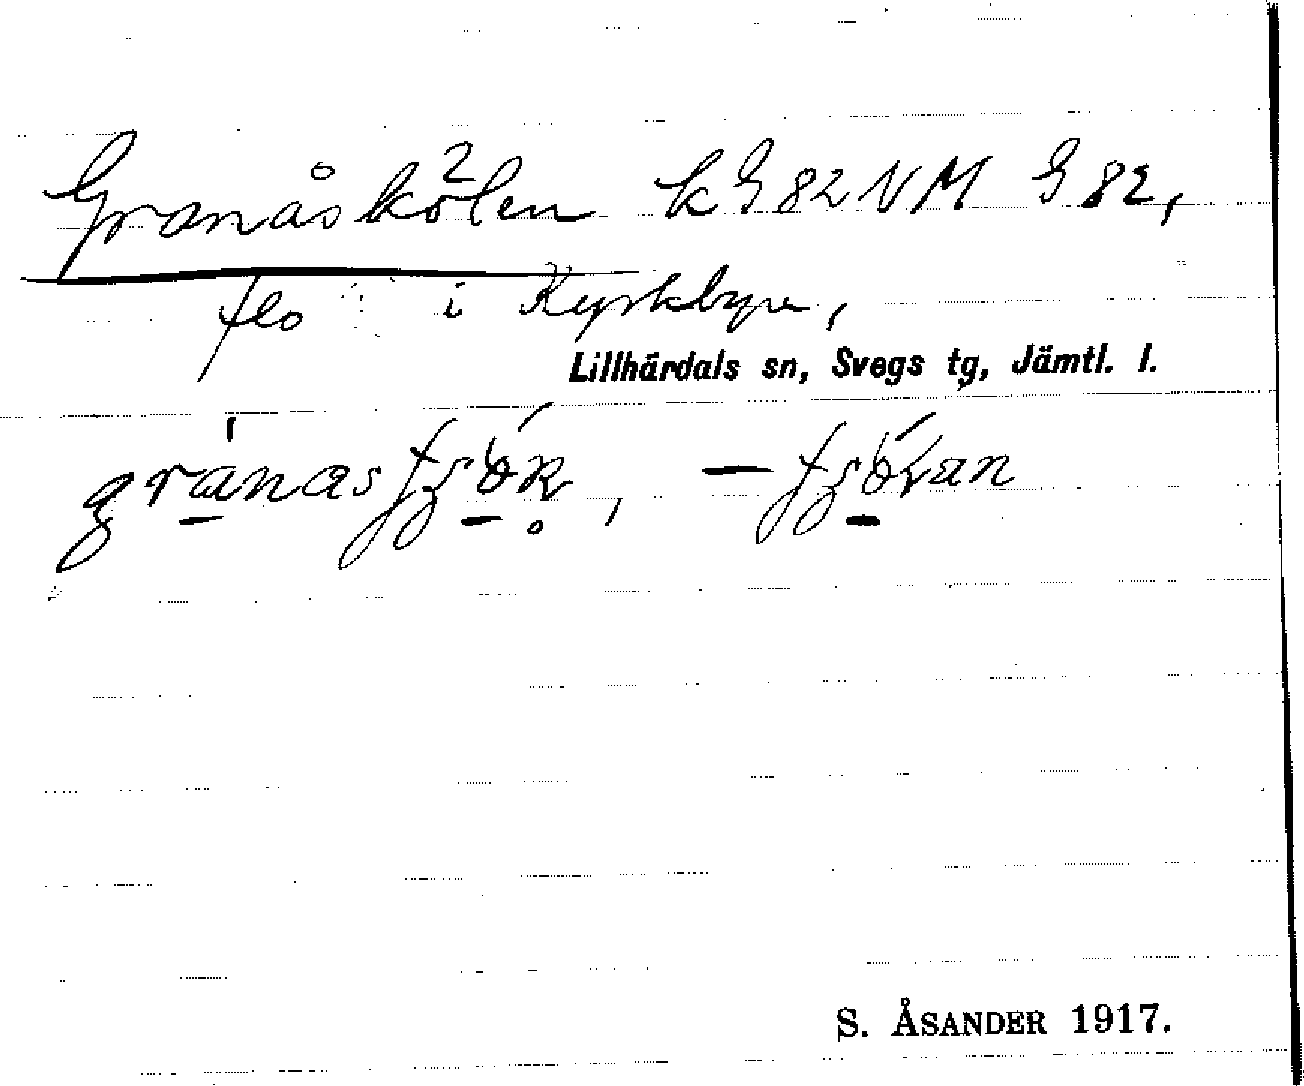 Granåskölen k G 82 N M G 82,
flo i Kyrkbyn,
Lillhärdals sn, Svegs tg, Jämtl. l.
S. ÅSANDER 1917.